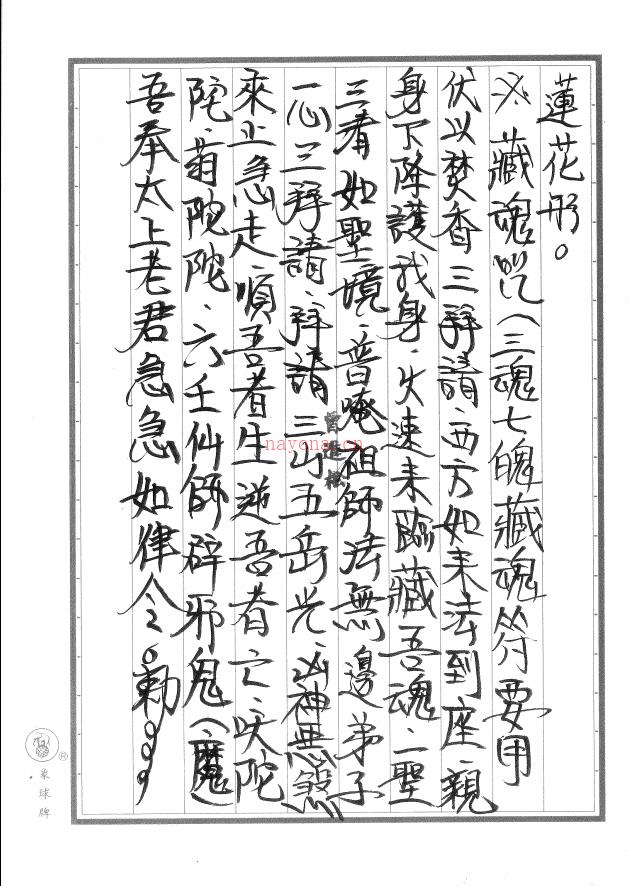 蓮花形。
※藏魂咒(三魂七魄藏魂符要用
伏以焚香三拜請、西方如來法到座、親
身下降護我身、火速來臨藏吾魂、一聖
三看如聖境、普唵祖師法無邊弟子
一心三拜請、拜請三山五岳光、凶神惡煞
來止急走、順吾者生逆吾者亡、吠陀
陀、翁陀陀、六壬仙師辟邪鬼(魔)
吾奉太上老君急急如律令。勅。。。
曾進機
nayona.cn
象球牌
®